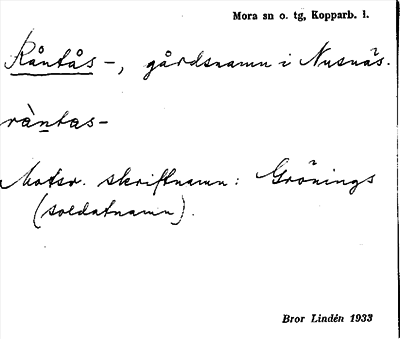 Mora sn o. tg, Kopparb. l.
Råntås -, gårdsnamn i Nusnäs.
ràntas-
Motsv. skriftnamn: Grönings
(soldatnamn).
Bror Lindén 1933